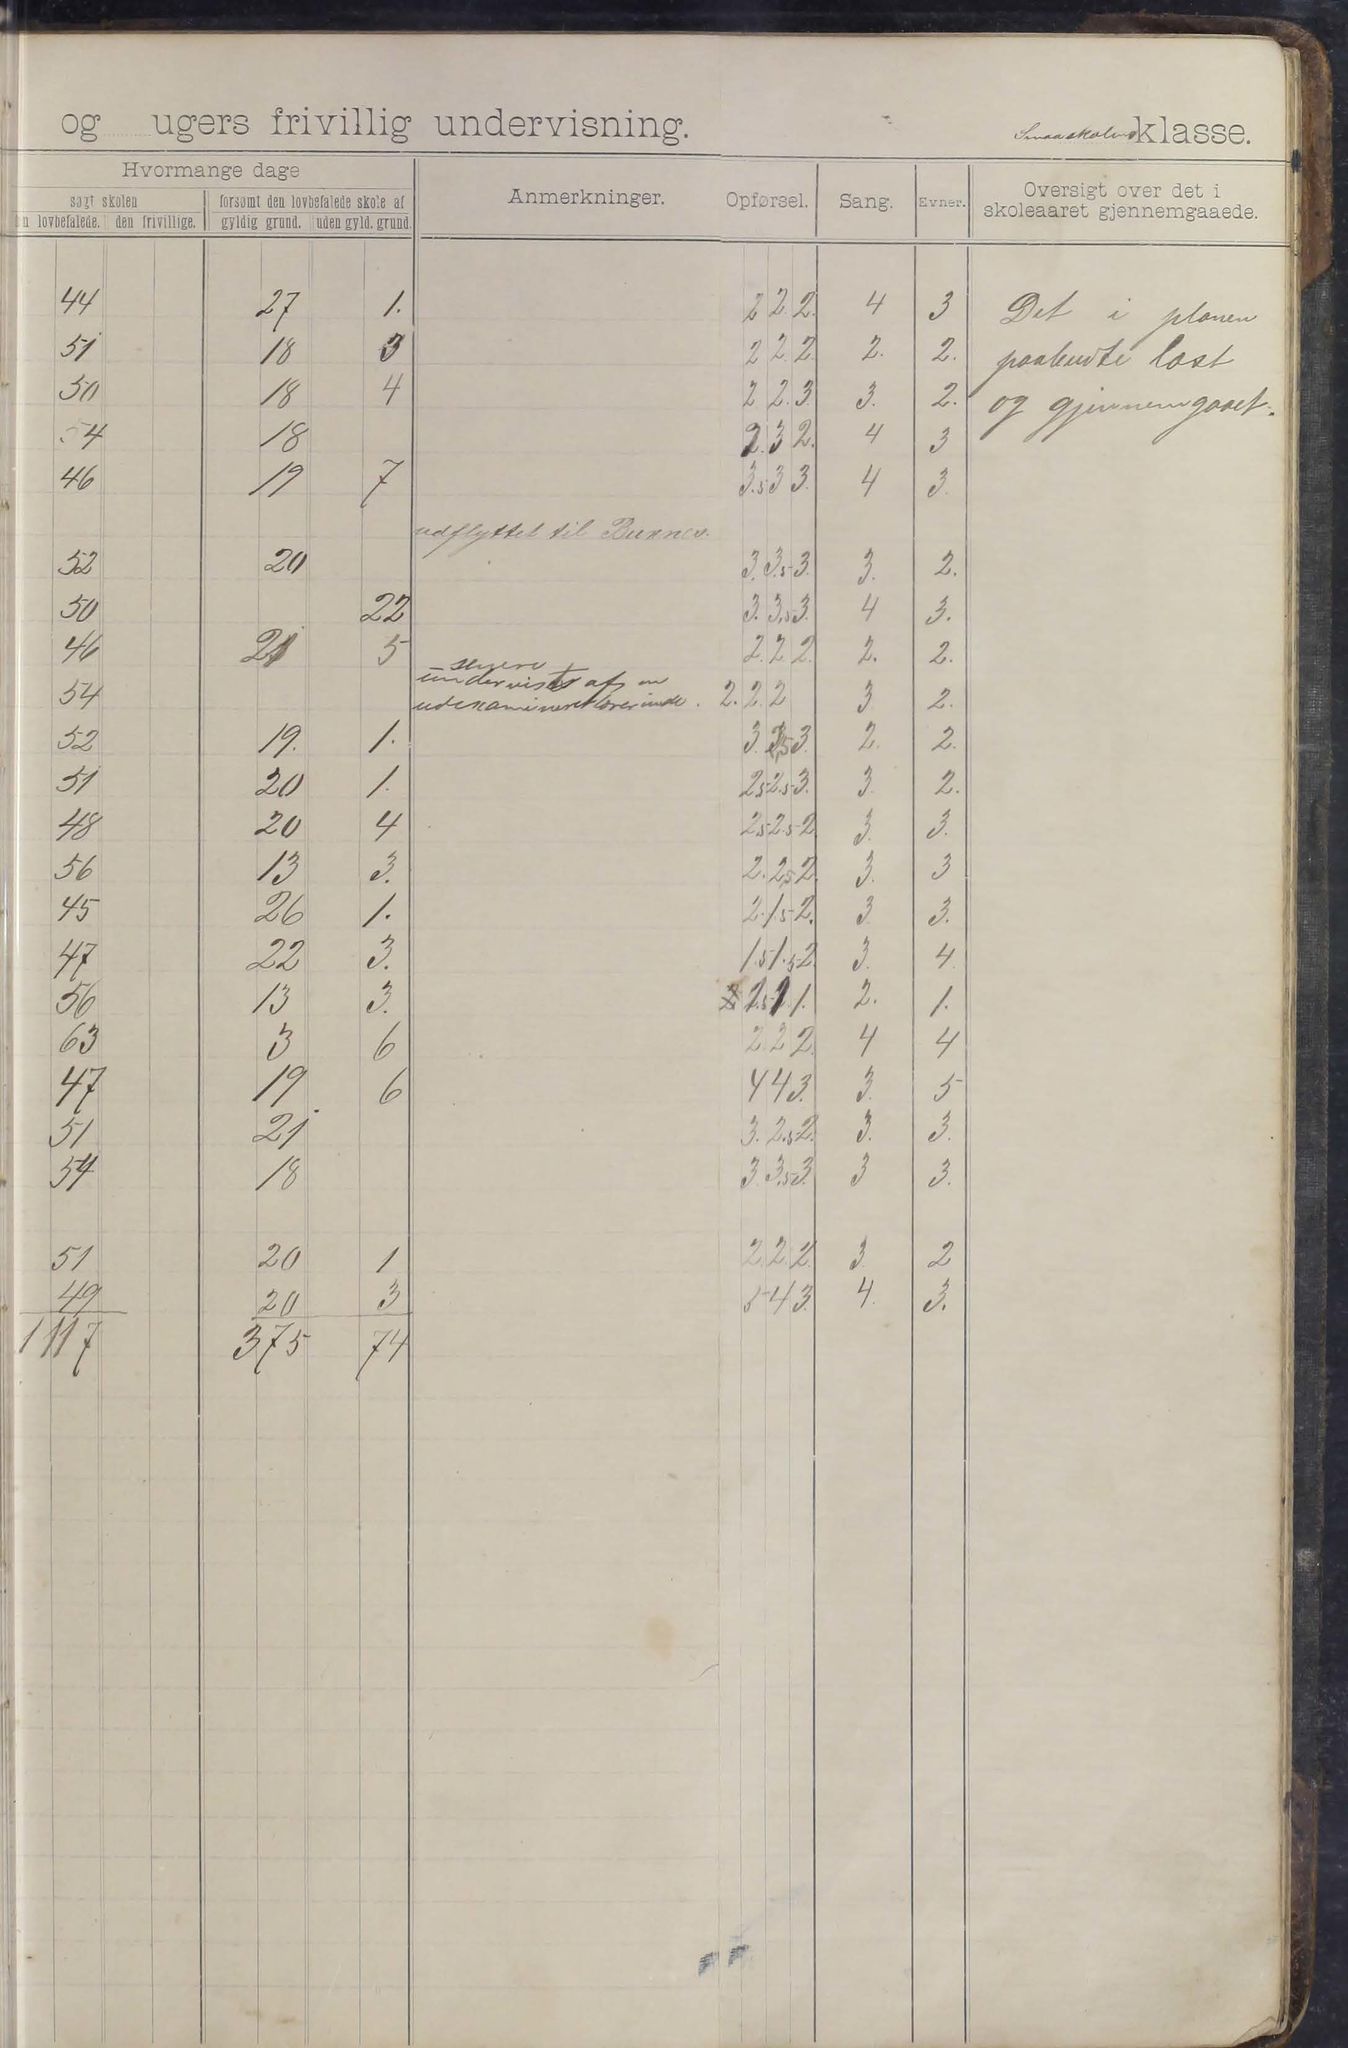 og ugers frivillig undervisning. Smaaskolens klasse.
Hvormange dage
søgt skolen forsømt den lovbefalede skole af Anmerkninger. Opførsel. Sang. Evner. Oversigt over det i
lovbefalede. den frivillige. gyldig grund. uden gyld. grund. skoleaaret gjennemgaaede.
44 27 1. 2 2. 2. 4 3 Det i planen
51 18 3 2 2 2 2. 2. paabudte læst
50 18 4 2 2. 3. 3. 2. og gjennemgaaet.
54 18 2. 3 2. 4 3
46 19 7 3.5 3 3. 4 3.
udflyttet til
52 20 3. 3.5 3. 3. 2.
50 22 3. 3.5 3. 4 3.
46 21 5 2. 2 2. 2. 2.
senere
undervist af en
54 udexamineret lærerinde. 2. 2. 2 3 2.
52 19. 1. 3. 3.5 3. 2. 2.
51 20 1. 2.5 2.5 3. 3. 2.
48 20 4 2.5 2.5 2 3. 3.
56 13 3. 2. 2.5 2. 3. 3
45 26 1. 2. 1.5 2. 3 3.
47 22 3. 1.5 1.5 2. 3. 4.
56 13 3. 1. 2. 1.
63 3 6 2. 2 2. 4 4
47 19. 6 4 4 3. 3. 5
51 21 3. 2.5 2. 3. 3.
54 18 3. 3.5 3. 3 3.
51 20 1 2. 2. 2. 3 2
49 20 3 5 4 3. 4. 3.
1117 375 74